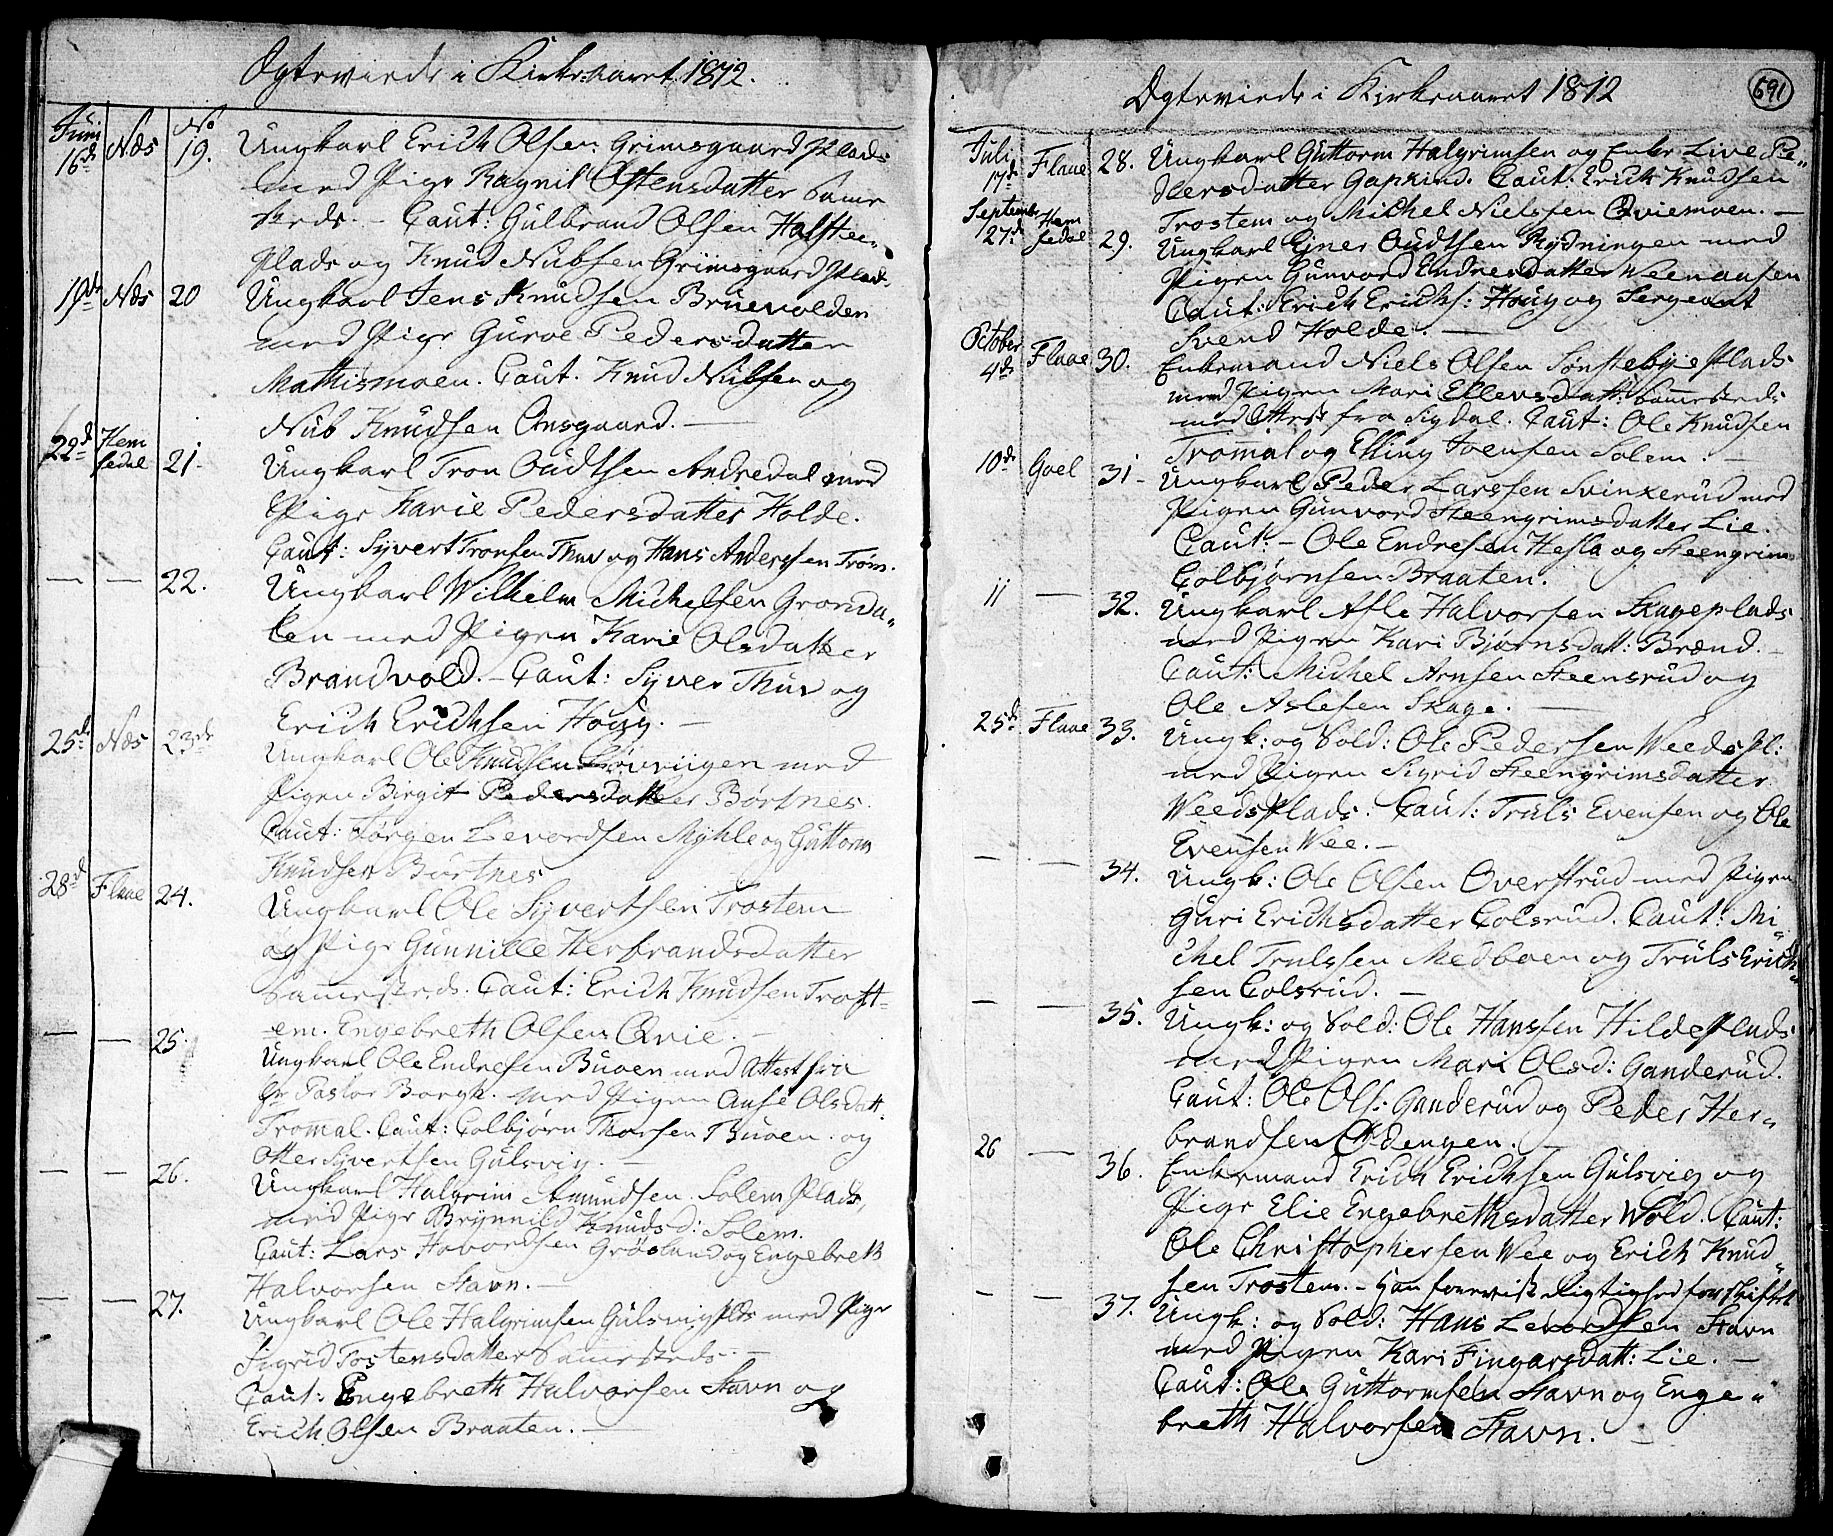 Ægteviede i Kirkeaaret 1812.
Juni 16de Næs No 19. Ungkarl Erich Olsen Grimsgaard Plads
med Pige Ragnil Østensdatter samme
steds. - Caut: Gulbrand Olsen Halstee„
Plads og Knud Nubsen Grimsgaard Plads
19de Næs 20 Ungkarl Jens Knudsen Bruevolden
med Pige Guroe Pedersdatter
Mathismoen. Caut. Knud Nubsen og
Nub Knudsen Onsgaard. —
22de Hem sedal 21. Ungkarl Tron Oudtsen Andredal med
Pige Karie Pedersdatter Holde.
Caut: Syvert Tronsen Thuv og Hans Anderssen Trøm.
— — 22. Ungkarl Wilhelm Michelsen Grønda„
len med Pigen Karie Olsdatter
Brandvold. - Caut: Syver Thuv og
Erich Erichsen Houg. —
25de Næs 23de Ungkarl Ole Knudsen med
Pigen Birgit Pedersdatter Børtnes.
Caut: Jørgen Levordsen Myhle og Guttorm
Knudsen Børtnes
28de Flaae 24. Ungkarl Ole Syvertsen Trostem
og Pige Gunnille Herbrandsdatter
sammesteds. Caut: Erich Knudsen Trost-
em. Engebreth Olsen Qvie.
— — 25. Ungkarl Ole Endresen Buoen med Attest fra
Hr Pastor Borgh. med Pigen Aase Olsdatt.
Tromal. Caut: Colbjørn Thorsen Buoen. og
Otter Syvertsen Gulsvig. —
— — 26. Ungkarl Halgrim Amundsen. Solem Plads,
med Pige Brynnild Knudsd: Solem.
Caut: Lars Hovordsen Grøsland og Engebreth
Halvorsen Stavn. —
— — 27. Ungkarl Ole Halgrimsen Gulsvigplds med Pige
Sigrid Tostensdatter Sammesteds. —
Caut: Engebreth Halvorsen Stavn og
Erich Olsen Braaten. —
Ægteviede i Kirkeaaret 1812
691
Juli 17de Flaae 28. Ungkarl Guttorm Halgrimsen og Enke Live Pe„
dersdatter Gaptind. Caut. Erich Knudsen
Trostem og Michel Nielssen Qviemoen. —
Septembr 27de Hem sedal 29. Ungkarl Ejner Oudtsen Rydningen med
Pigen Gunvord Endresdatter Weenaasen
Caut: Erich Erichs: Houg og Sergeant
Svend Holde. —
October 4de Flaae 30. Enkemand Niels Olsen Sønstebye Plads
med Pigen Mari Ellensdatt: sammesteds
med Attest fra Sigdal. Caut: Ole Knudsen
Tromal og Elling Svensen Solem. —
10de Goel 31- Ungkarl Peder Larssen Svinkerud med
Pigen Gunvord Steengrimsdatter Lie.
Caut: - Ole Endresen Hesla og Steengrim
Colbjørnsen Braaten.
11 — 32. Ungkarl Asle Halvorsen Skageplads
med Pigen Kari Bjørnsdatt: Brænd. —
Caut: Michel Arnsen Steensrud og
Ole Aslesen Skage. —
25de Flaae 33. Ungk: og Sold: Ole Pedersen Weedspl:
med Pigen Sigrid Steengrimsdatter
WeedsPlads. Caut: Truls Evensen og Ole
Evensen Wee. —
— — 34. Ungk: Ole Olsen Overstrud med Pigen
Guri Erichsdatter Colsrud. Caut: Mi„
chel Trulssen Medboen og Truls Erich„
sen Colsrud. —
— — 35. Ungk: og Sold: Ole Hanssen HildePlads
med Pigen Mari Olsd: Ganderud.
Caut: Ole Ols: Ganderud og Peder Her„
brandsen Ødengen. —
26 — 36. Enkemand Erich Erichsen Gulsvig og
Pige Elie Engebrethsdatter Wold. Caut:
Ole Christophersen Wee og Erich Knud„
sen Trostem. - Han foreviste Rigtighed for skiftet
— — 37. Ungk: og Sold: Hans Levordsen Stavn
med Pigen Kari Fingarsdatt: Lie. —
Caut: Ole Guttormsen Stavn og Enge„
breth Halvorsen Stavn. —